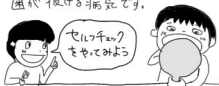 歯が抜ける病気です。
セルフチェック
をやってみよう